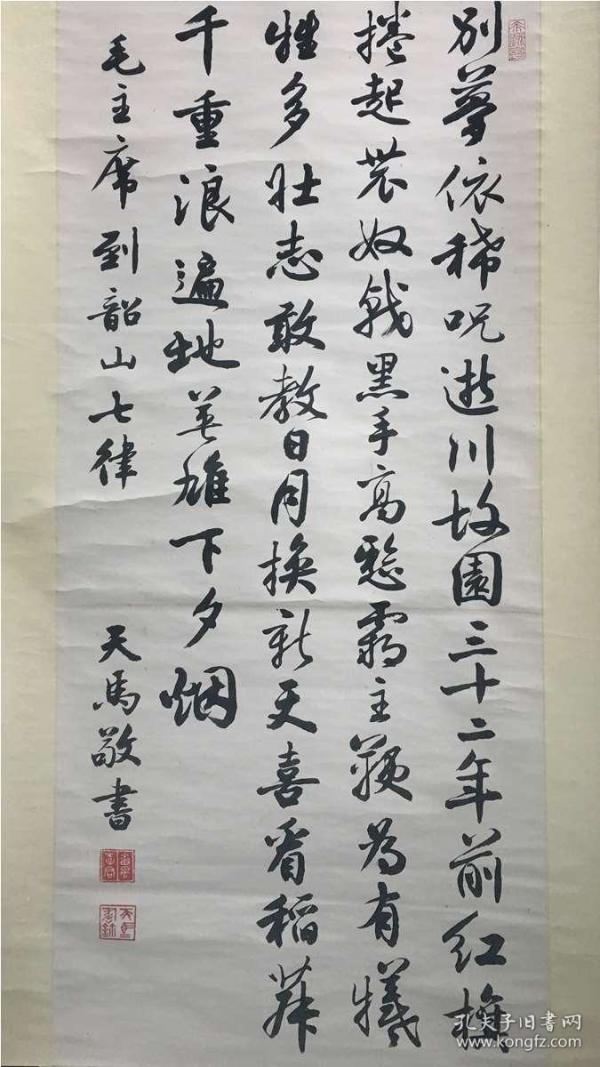 別夢依稀呪逝川故園三十二年前紅旗
捲起農奴戟黑手高懸霸主鞭為有犧
牲多壯志敢教日月換新天喜看稻菽
千重浪遍地英雄下夕烟
毛主席到韶山七律 天馬敬書
孔夫子旧书网
www.kongfz.com